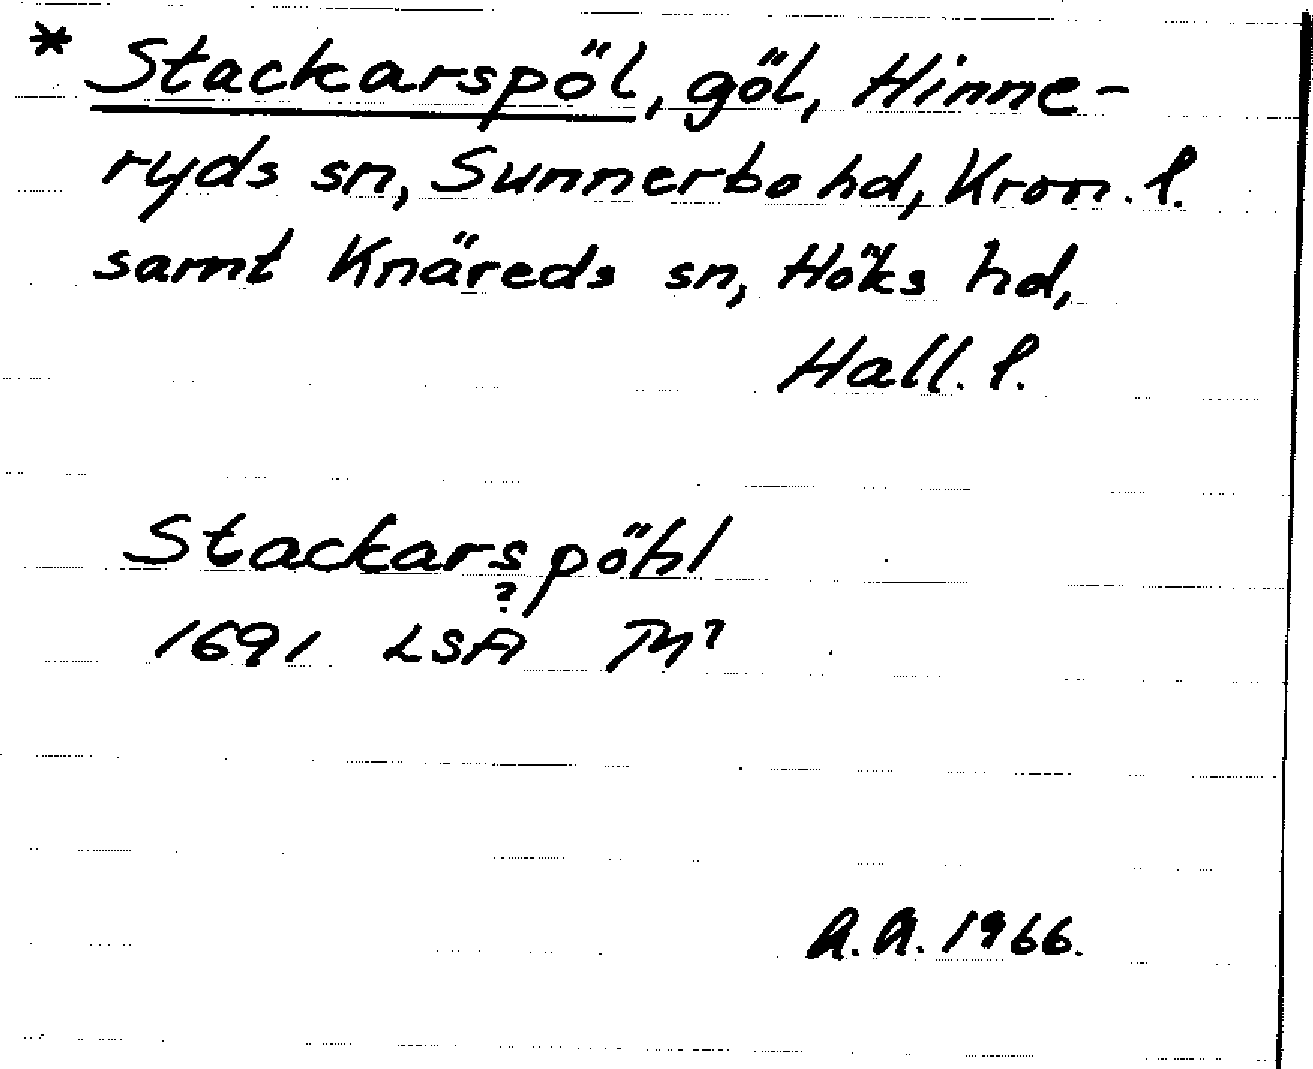 * Stackarspöl, göl, Hinne-
ryds sn, Sunnerbo hd, Kron. l.
samt Knäreds sn, Höks hd,
Hall. l.
Stackarspöhl
?
1691 LSA M⁷
A.A. 1966.